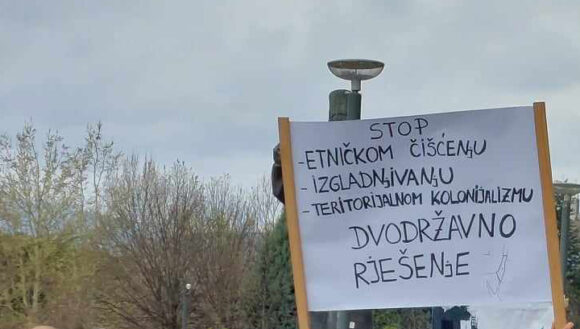 STOP
- ETNIČKOM ČIŠĆENJU
- IZGLADNJIVANJU
- TERITORIJALNOM KOLONIJALIZMU
DVODRŽAVNO
RJEŠENJE